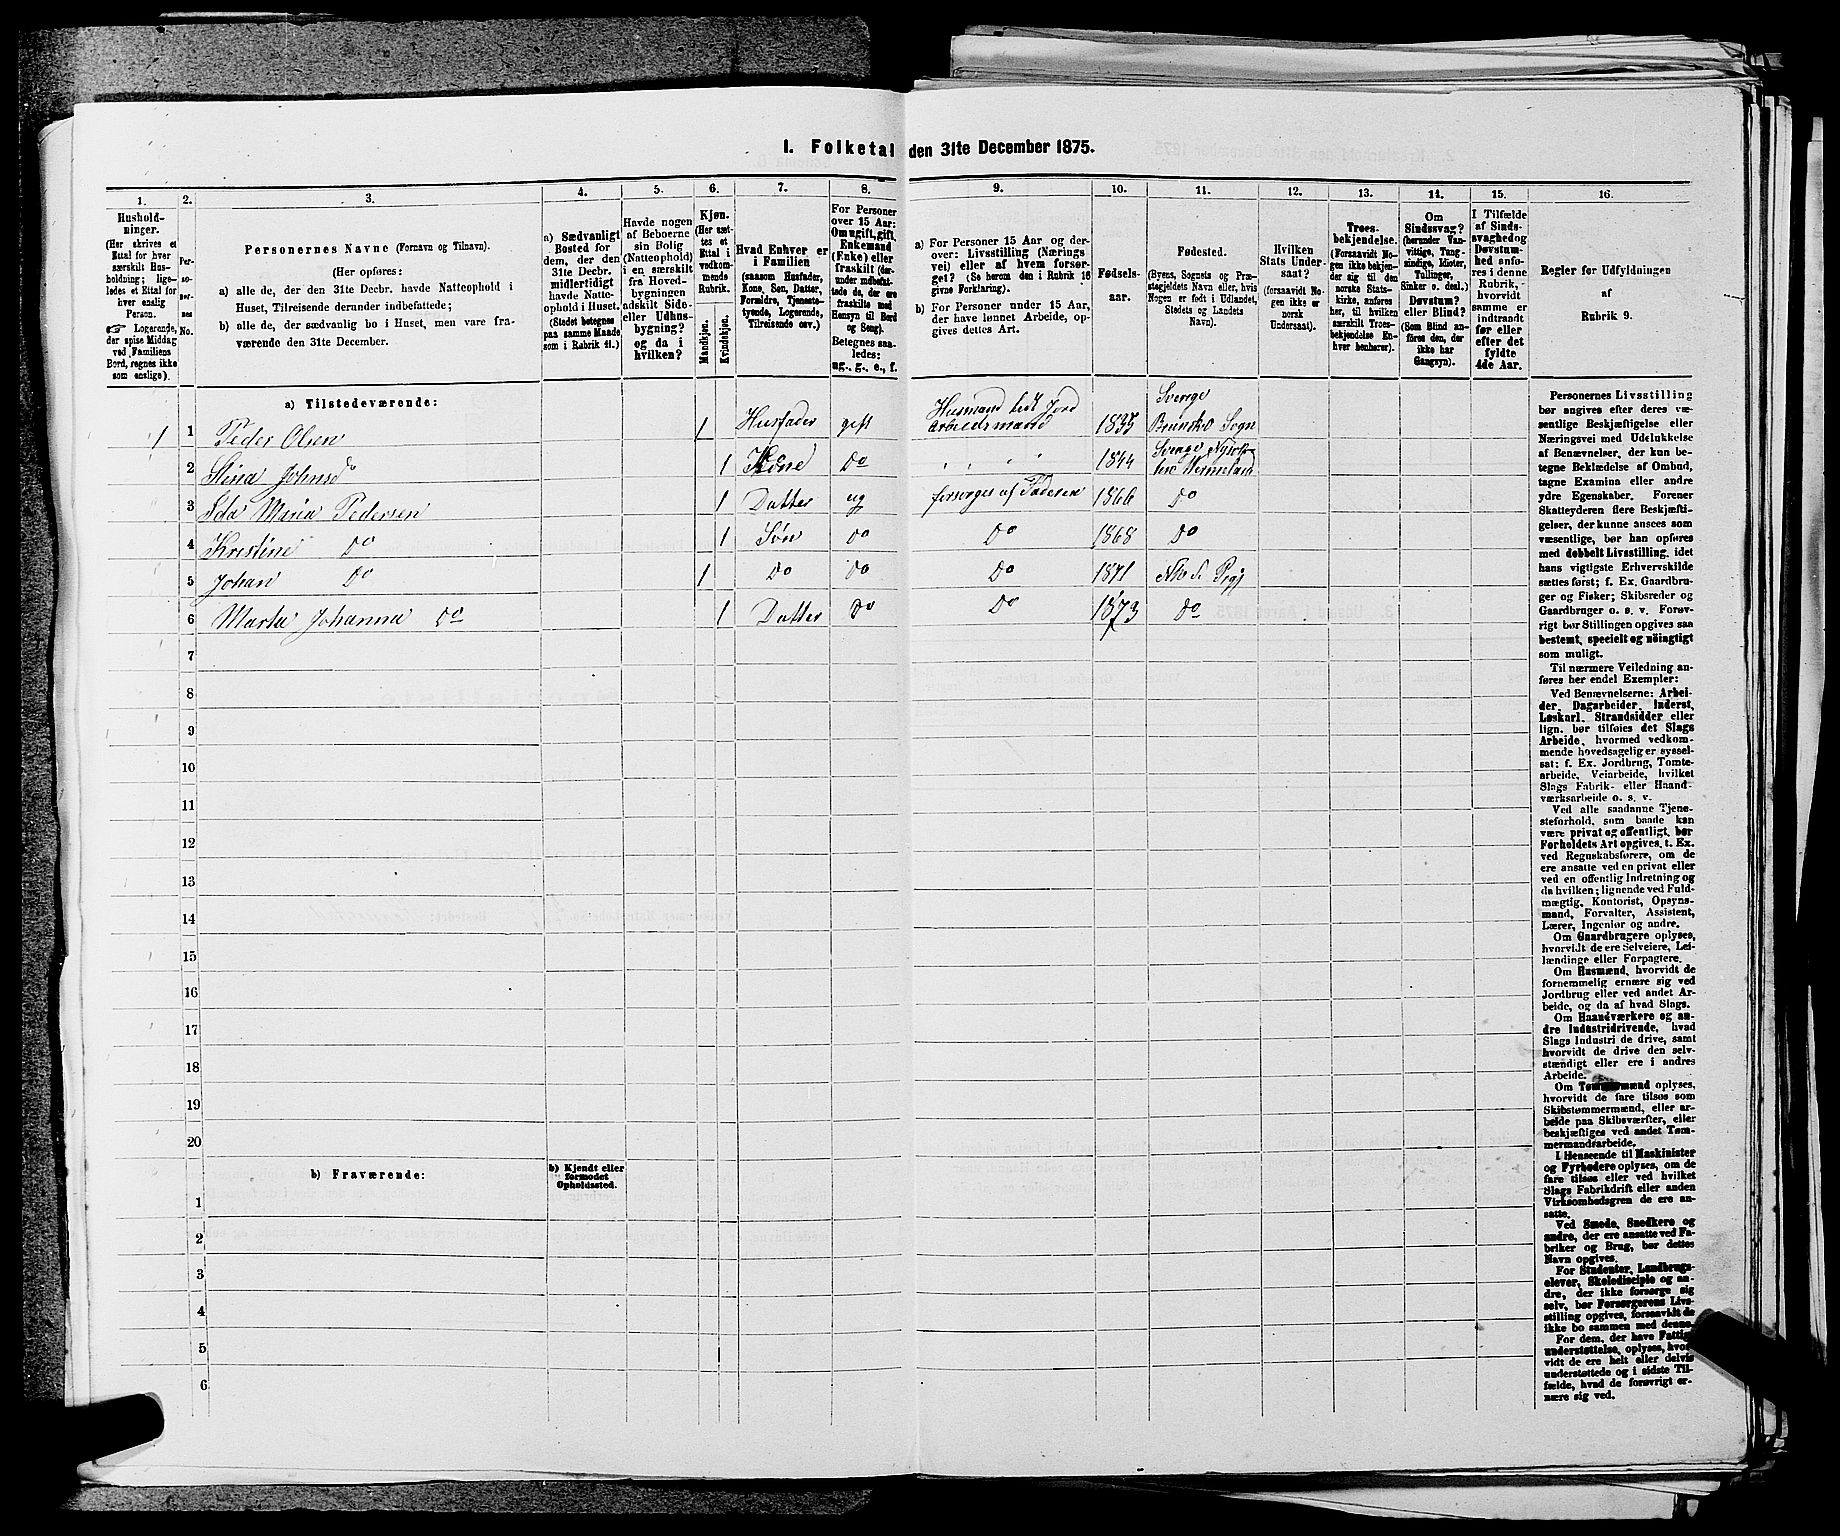 I. Folketal den 31te December 1875.
1. 2. 3. 4. 5. 6. 7. 8. 9. 10. 11. 12. 13. 14. 15. 16.
Hushold-
ninger.
(Her skrives et
Ettal for hver
særskilt Hus-
holdning; lige-
ledes et Ettal for
hver enslig
Person.
☞ Logerende,
der spise Middag
ved Familiens
Bord, regnes ikke
som enslige).
Per-
so-
ner-
nes
No.
Personernes Navne (Fornavn og Tilnavn).
(Her opføres:
a) alle de, der den 31te Decbr. havde Natteophold i
Huset, Tilreisende derunder indbefattede;
b) alle de, der sædvanlig bo i Huset, men vare fra-
værende den 31te December.
a) Sædvanligt
Bosted for
dem, der den
31te Decbr.
midlertidigt
havde Natte-
ophold i Huset.
(Stedet betegnes
paa samme Maade
som i Rubrik 11.)
Havde nogen
af Beboerne
sin Bolig
(Natteophold)
i en særskilt
fra Hoved-
bygningen
adskilt Side-
eller Udhus-
bygning?
og da i
hvilken?
Kjøn.
(Her sæt-
tes et
Ettal i
vedkom-
mende
Rubrik.
Mandkjøn.
Kvindekjøn.
Hvad Enhver er
i Familien
(saasom Husfader,
Kone, Søn, Datter,
Forældre, Tjeneste-
tyende, Logerende,
Tilreisende osv.)
For Personer
over 15 Aar:
Om ugift, gift,
Enkemand
(Enke) eller
fraskilt (der-
under indbefat-
tede de, der ere
fraskilte med
Hensyn til Bord
og Seng).
Betegnes saa-
ledes:
ug., g., e., f.
a) For Personer 15 Aar og der-
over: Livsstilling (Nærings
vei) eller af hvem forsør-
get? (Se herom den i Rubrik 16
givne Forklaring).
b) For Personer under 15 Aar,
der have lønnet Arbeide, op-
gives dettes Art.
Fødsels-
aar.
Fødested.
(Byens, Sognets og Præ-
stegjeldets Navn eller, hvis
Nogen er født i Udlandet,
Stedets og Landets
Navn).
Hvilken
Stats Under-
saat?
(forsaavidt No-
gen ikke er
norsk
Undersaat).
Troes-
bekjendelse.
(Forsaavidt No-
gen ikke bekjen-
der sig til den
norske Stats-
kirke, anføres
her, til hvilken
særskilt Troes-
bekjendelse En-
hver henhører).
Om
Sindssvag?
(herunder Van-
vittige, Tung-
sindige, Idioter,
Tullinger,
Sinker o. desl.)
Døvstum?
eller Blind?
(Som Blind an-
føres den, der
ikke har
Gangsyn).
I Tilfælde
af Sinds-
svaghed og
Døvstum-
hed anfø-
res i denne
Rubrik,
hvorvidt
samme er
indtraadt
før eller
efter det
fyldte
4de Aar.
Regler før Udfyldningen
af
Rubrik 9.
a) Tilstedeværende:
1 1 Peder Olsen 1 Husfader gift Husmand Jord Arbeidsmand 1835 Sverge Brunsko Sogn
2 Stina Johnsd 1 Kone Do " " " " 1844 Sverge Vermeland
3 Ida Maria Pedersen 1 Datter ug forsørges af Faderen 1866 Do
4 Kristine Do 1 Søn Do Do 1868 Do
5 Johan Do 1 Do Do Do 1871 Prgj
6 Marta Johanna Do 1 Datter Do Do 1873 Do
7
8
9
10
11
12
13
14
15
16
17
18
19
20
b) Fraværende:
b) Kjendt eller
formodet
Opholdssted.
1
2
3
4
5
6
Personernes Livsstilling
bør angives efter deres væ-
sentlige Beskjæftigelse eller
Næringsvei med Udelukkelse
af Benævnelser, der kun be-
tegne Beklædelse af Ombud,
tagne Examina eller andre
ydre Egenskaber. Forener
Skatteyderen flere Beskjæfti-
gelser, der kunne ansees som
væsentlige, bør han opføres
med dobbelt Livsstilling, idet
hans vigtigste Erhvervskilde
sættes først; f. Ex. Gaardbru-
ger og Fisker; Skibsreder og
Gaardbruger o. s. v. Forøv-
rigt bør Stillingen opgives saa
bestemt, specielt og nöiagtigt
som muligt.
Til nærmere Veiledning an-
føres her endel Exempler:
Ved Benævnelserne: Arbei-
der, Dagarbeider, Inderst,
Løskarl, Strandsidder eller
lign. bør tilføies det Slags
Arbeide, hvormed vedkom-
mende hovedsagelig er syssel-
sat: f. Ex. Jordbrug, Tomte-
arbeide, Veiarbeide, hvilket
Slags Fabrik- eller Haand-
værksarbeide o. s. v.
Ved alle saadanne Tjene-
steforhold, som baade kan
være privat og offentligt, bør
Forholdets Art opgives, t. Ex.
ved Regnskabsførere, om de
ere ansatte ved en privat eller
ved en offentlig Indretning og
da hvilken; lignende ved Fuld-
mægtig, Kontorist, Opsyns-
mand, Forvalter, Assistent,
Lærer, Ingeniør og andre.
Om Gaardbrugere oplyses,
hvorvidt de ere Selveiere, Lei-
lændinge eller Forpagtere.
Om Husmænd, hvorvidt de
fornemmelig ernære sig ved
Jordbrug eller ved andet Ar-
beide, og da af hvad Slags.
Om Haandværkere og an-
dre Industridrivende, hvad
Slags Industri de drive, samt
hvorvidt de drive den selv-
stændigt eller ere i andres
Arbeide.
Om Tømmermænd oplyses,
hvorvidt de fare tilsøs som
Skibstømmermænd, eller ar-
beide paa Skibsværfter, eller
beskjæftiges ved andet Tøm-
mermandsarbeide.
I Henseende til Maskinister
og Fyrbødere oplyses, om de
fare tilsøs eller ved hvilket
Slags Fabrikdrift eller anden
Virksombedsgren de ere an-
satte.
Ved Smede, Snedkere og
andre, der ere ansatte ved Fa-
briker og Brug, bør dettes
Navn opgives.
For Studenter, Landbrugs-
elever, Skoledisciple og an-
dre, der ikke forsørge sig
selv, bør Forsørgerens Livs-
stilling opgives, forsaavidt de
ikke bo sammen med denne.
For dem, der have Fattig-
understøttelse, oplyses, hvor-
vidt de ere helt eller delvis
understøttede og i sidste Til-
fælde, hvad de forøvrigt er-
nære sig ved.